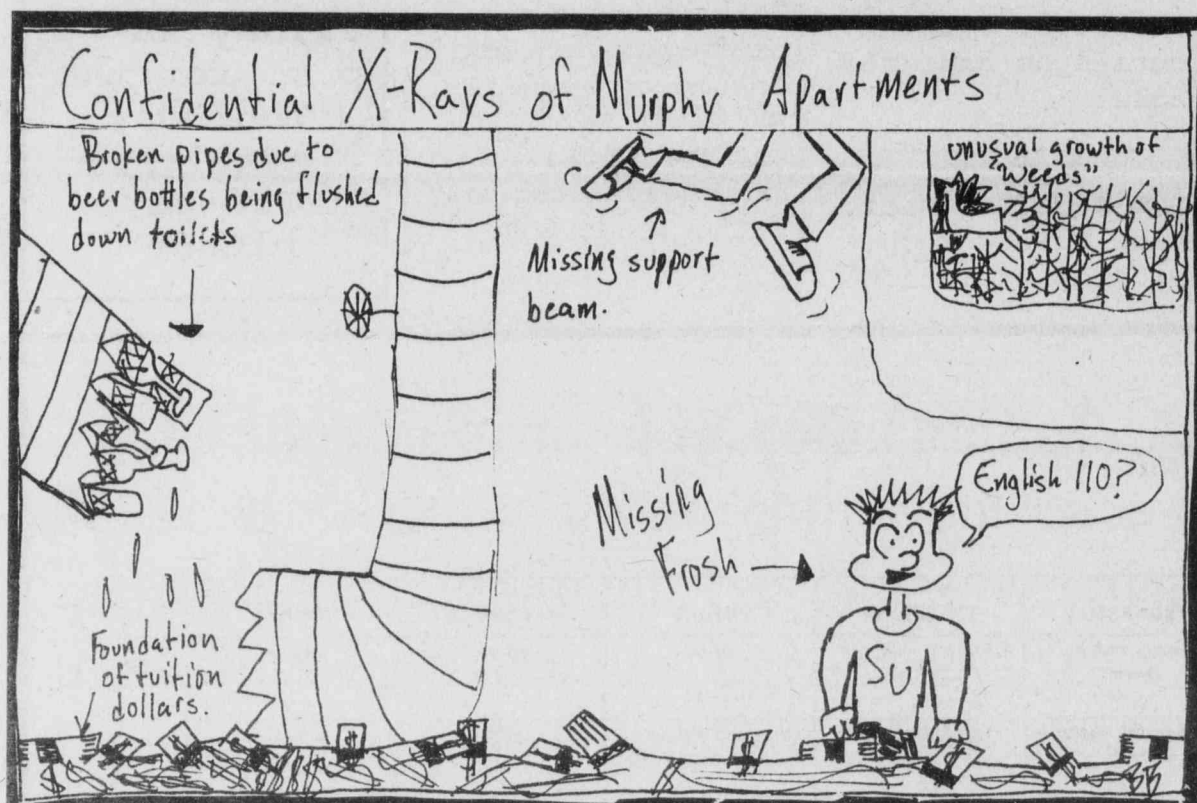 Confidential X-Rays of Murphy Apartments
Broken pipes due to
beer bottles being flushed
down toilets
Missing support
beam.
unusual growth of
"weeds"
English 110?
Missing
Frosh
SU
Foundation
of tuition
dollars.